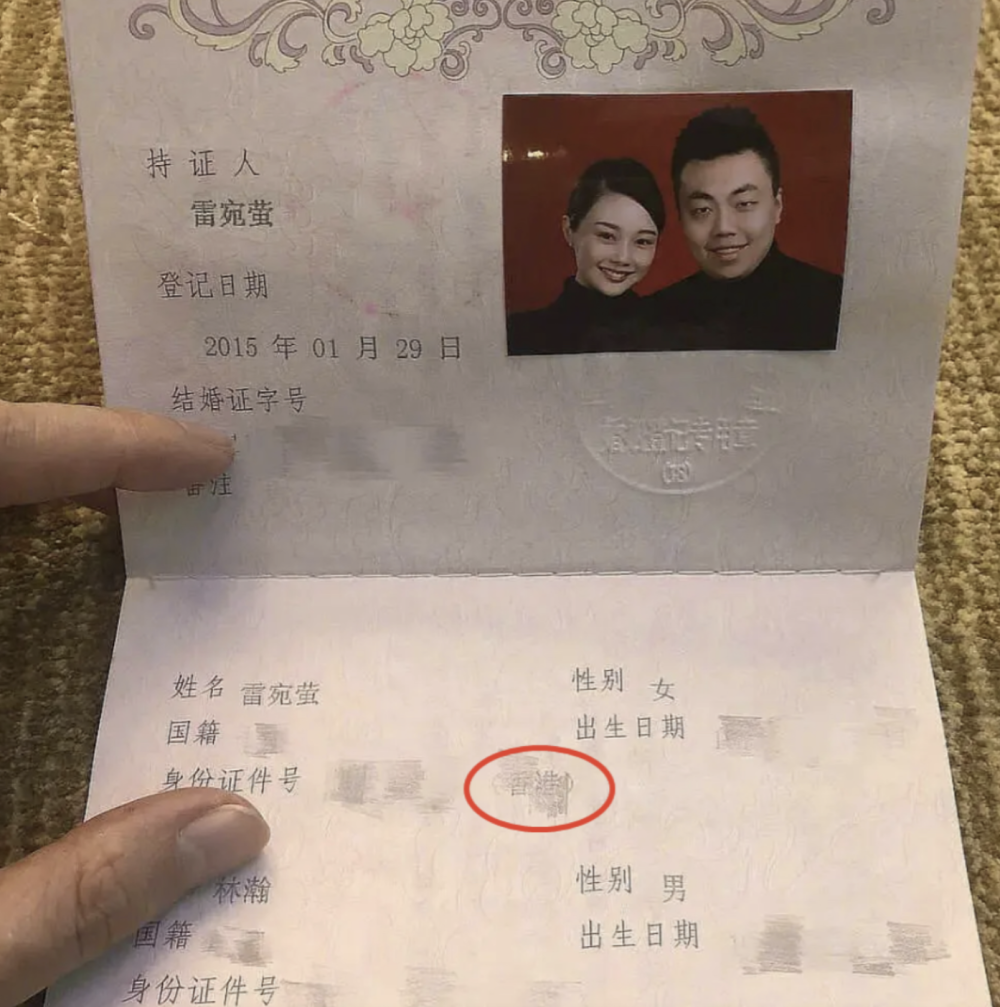 持证人
雷宛萤
登记日期
2015 年 01 月 29 日
结婚证字号
备注
记专用章
姓名 雷宛萤 性别 女
国籍 出生日期
身份证件号 香港
林瀚 性别 男
国籍 出生日期
身份证件号